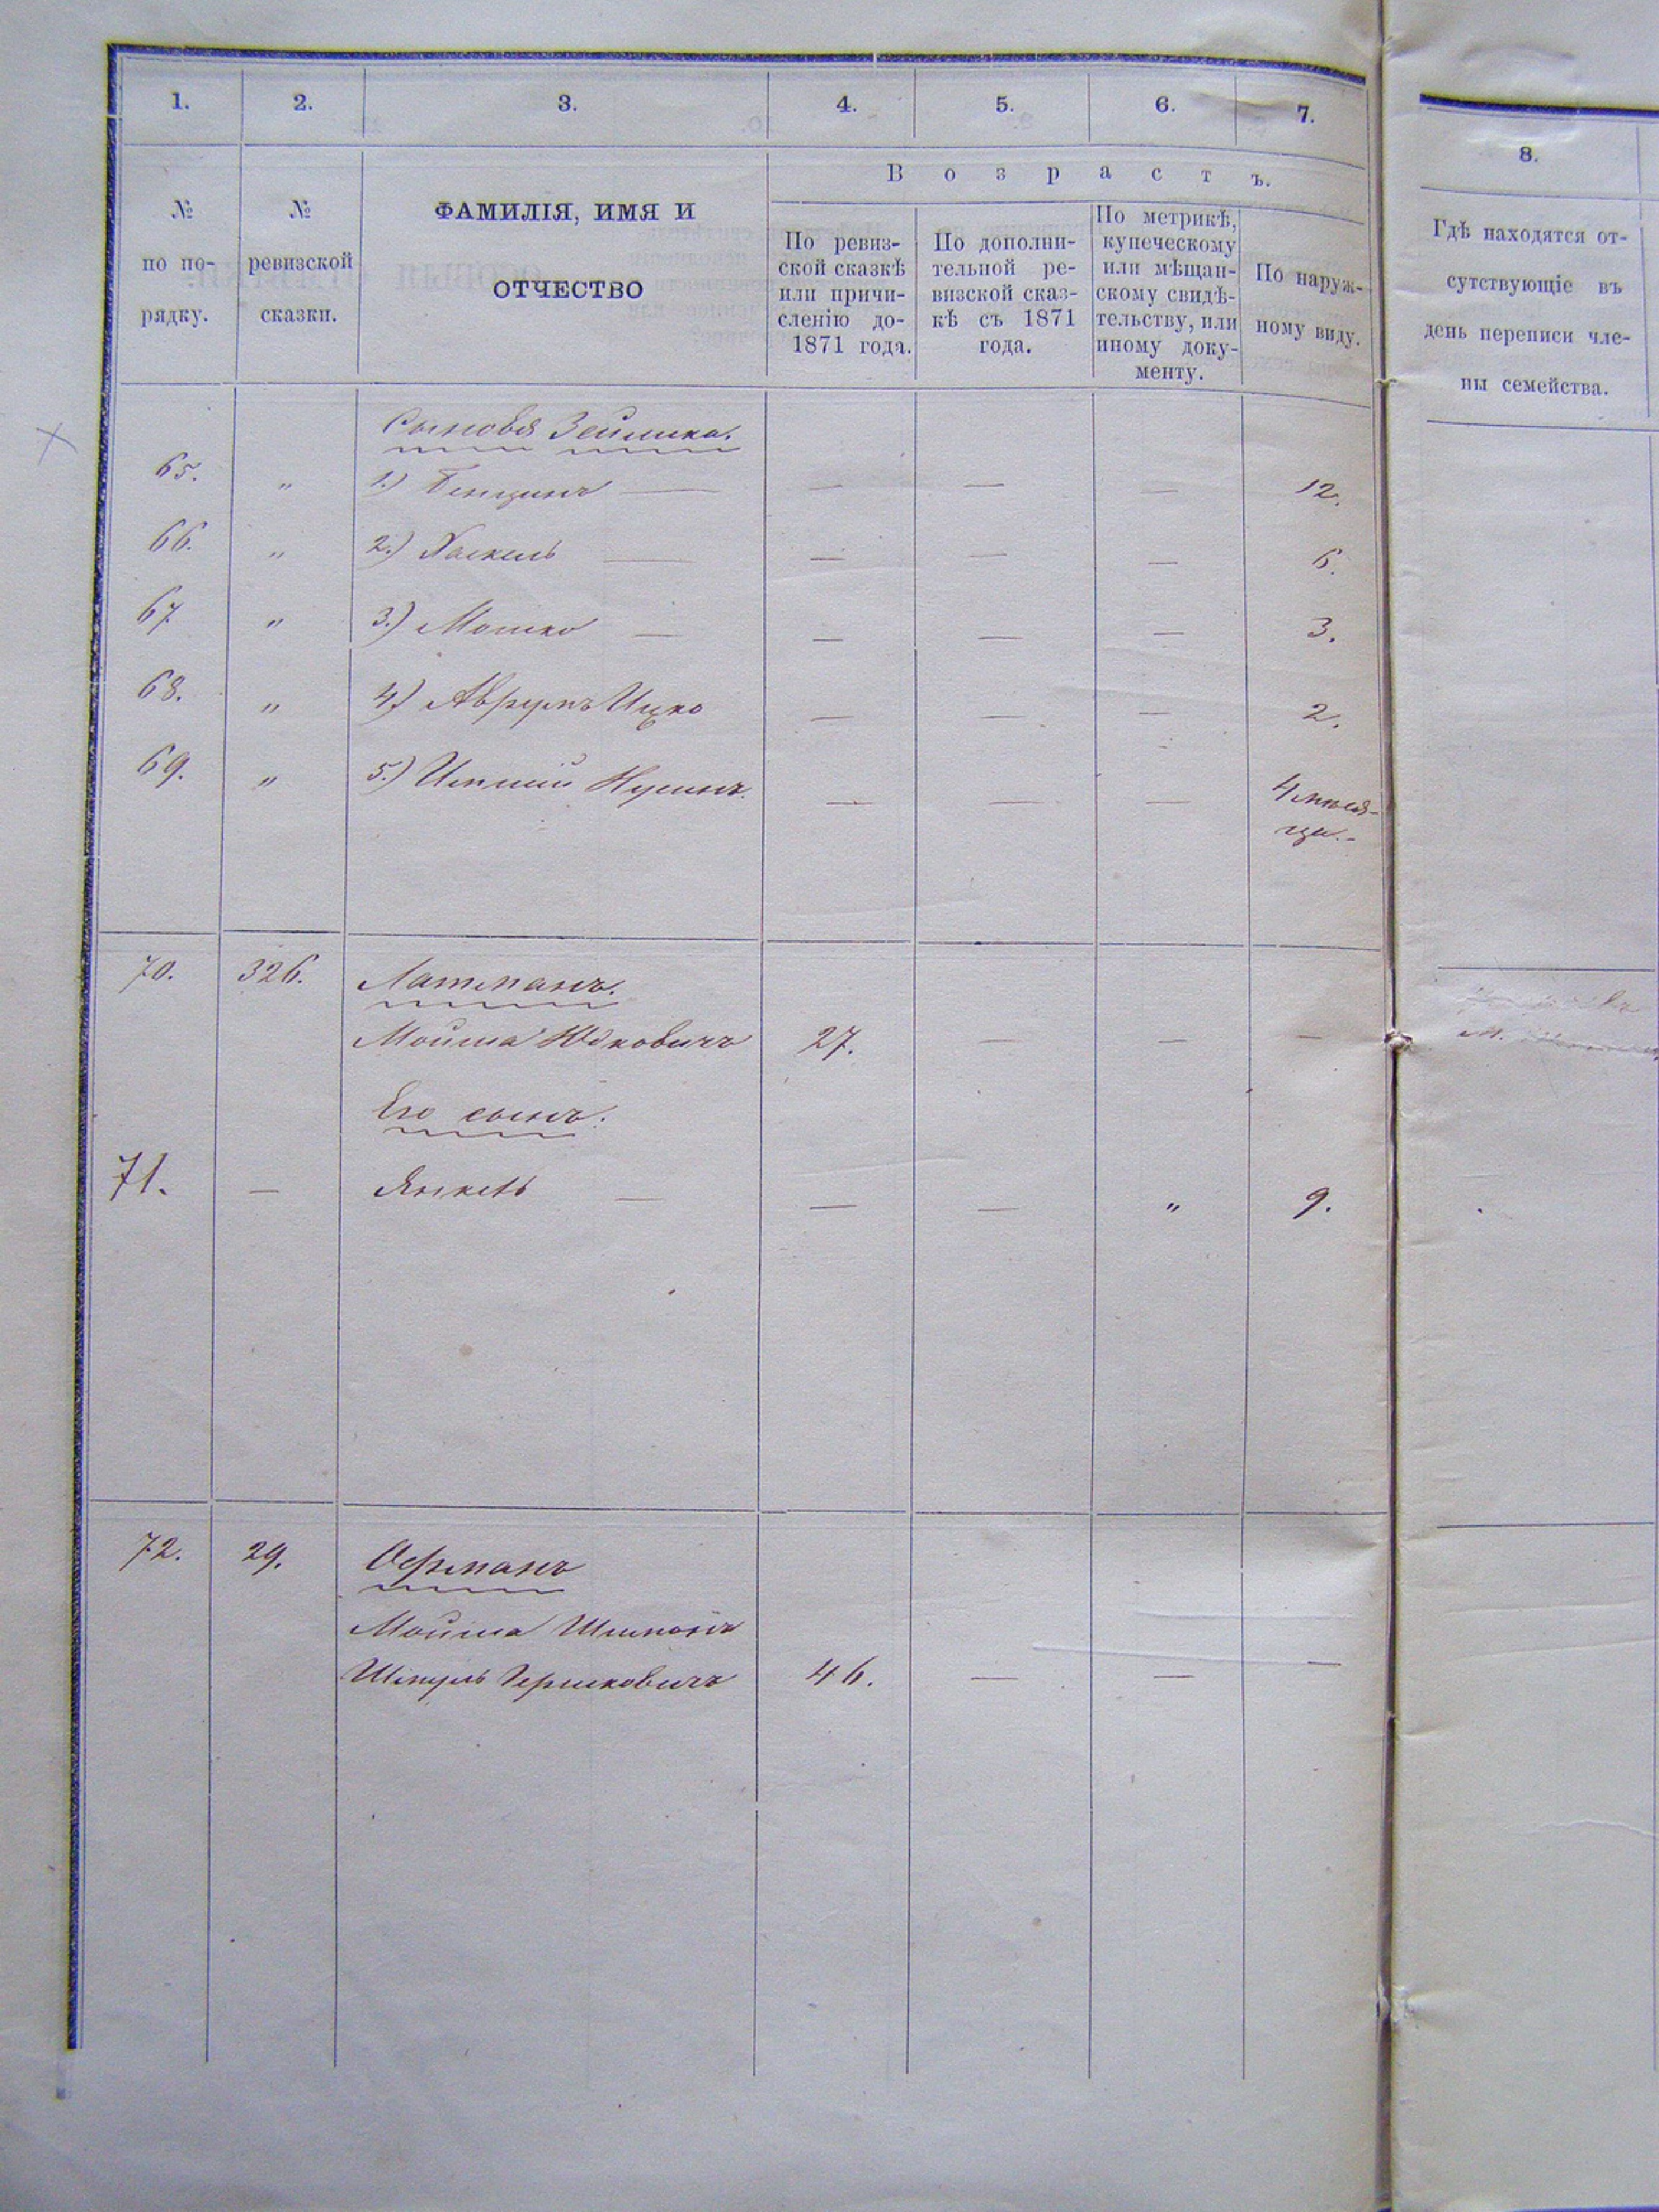 1. 2. 3. 4. 5. 6. 7.
8.
Возрастъ.
№ по порядку.
№ ревизской сказки.
ФАМИЛІЯ, ИМЯ И
ОТЧЕСТВО
По ревиз-
ской сказкѣ
или причи-
сленію до-
1871 года.
По дополни-
тельной ре-
визской сказ-
кѣ съ 1871
года.
По метрикѣ,
купеческому
или мѣщан-
скому свидѣ-
тельству, или
иному доку-
менту.
По наруж-
ному виду.
Гдѣ находятся от-
сутствующіе въ
день переписи чле-
ны семейства.
Сыновья Зейлика.
65. " 1.) Бенцинъ — — — — 12.
66. " 2.) Хаскель — — — — 6.
67 " 3.) Мошко — — — — 3.
68. " 4.) Аврумъ Ицко — — — 2.
69. " 5.) — — — 4 мѣся-
ца.
70. 326. Латманъ.
Мойша Юдковичъ 27. — — —
Его сынъ:
71. — Янкель — — — " 9.
72. 29. Офманъ
Мойша Шимонъ
Шмуль Гершковичъ 46. — — —